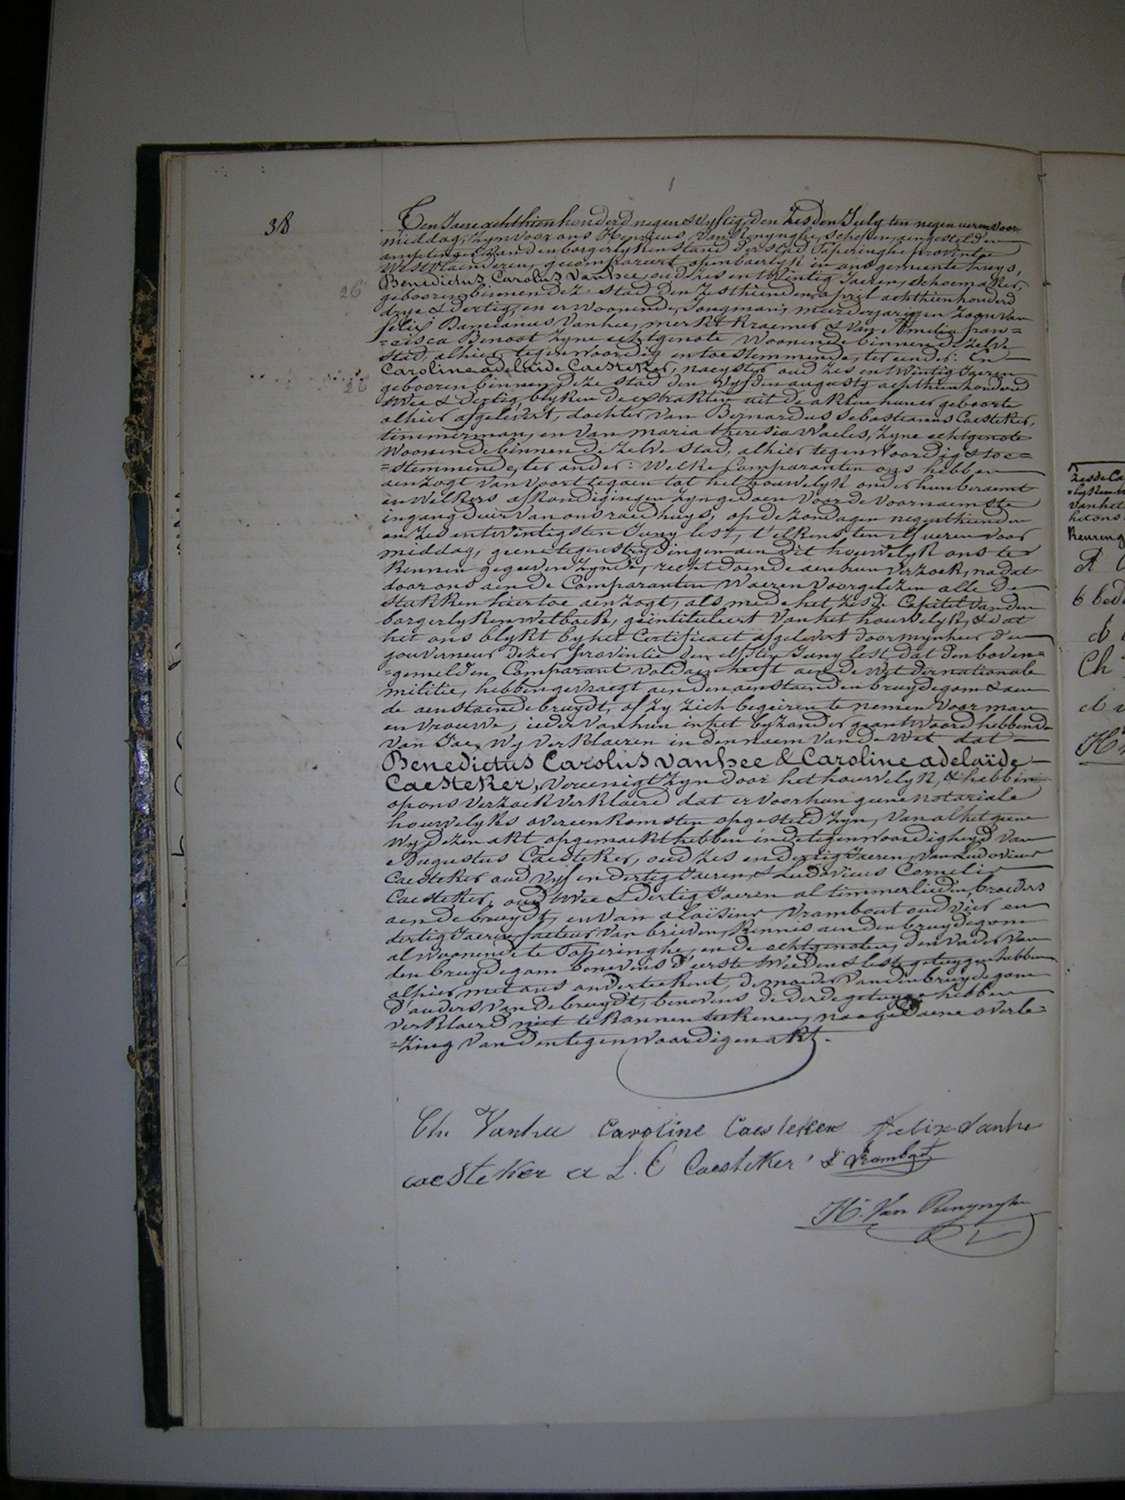 38
Ten Jaere achthien honderd negen & vyftig, den Zesden July ten negen uren voor
middag, Zyn voor ons Henricus Van Renynghe, schepen, aengestelden
ampteling van den borgerlyken stand der stad Poperinghe provintie
Westvlaenderen, gecompareert openbaerlyk in ons gemeente huys,
Benedictus Carolus Vanhee, oud zes en twintig Jaeren, schoenmaker,
26
geboren binnen deze stad den zesthienden april achthienhonderd
drye & dertig, en er woonende, Jongman, meerderjarigen zoon van
felix Damianus Vanhee, merkt kraemer & van Amelia fran=
=cisca Benoot zyne echtgenote woonende binnen dezelve
stad, alhier tegenwoordig en toestemmende, ter eender: En
Caroline adelaïde Caesteker, naeyster oud zes en twintig Jaeren
26
geboren binnen deze stad den vyfden augusty achthienhonderd
twee & dertig, blyken de extrakten uit de akten hunner geboorte
alhier afgelevert, dochter van Bernardus Sebastianus Caesteker,
timmerman, en van maria theresia Waeles, Zyne echtgenote
woonende binnen dezelve stad, alhier tegenwoordig & toe=
=stemmende, ter ander: Welke Comparanten ons hebben
aenzogt van voort te gaen tot het houwelyk onder hun beraemt
en welkers afkondigingen zyn gedaen voor de voornaemste
ingang deur van ons raedhuys, op de zondagen negenthienden
en zes en twintigsten Juny lest, t'elkens ten elf ueren voor
middag, geene tegenstrydingen aen dit houwelyk ons te
kennen gegeven zynde, recht doende aen hun verzoek, na dat
door ons aen de Comparanten waeren voorgelezen alle de
stukken hier toe aenzogt, als mede het zesde Capitel van den
borgerlyken wetboek, geintituleert van het houwelyk, & dat
het ons blykt by het Certificaet afgelevert door mynheer den
gouverneur dezer provintie den elfsten Juny lest, dat den boven=
=gemelden Comparant voldaen heeft aen de wet der nationale
militie, hebben gevraegt aen den aenstaenden bruydegom & aen
de aenstaende bruydt, of zy zich begeiren te nemen voor man
en vrouwe, ieder van hun in het byzonder geantwoord hebbende
van Jae, Wy verklaeren in den naem van de Wet dat
Benedictus Carolus Vanhee & Caroline adelaïde
Caesteker, vereenigt zyn door het houwelyk, & hebben
op ons verzoek verklaerd dat er voor hun geene notariale
houwelyks overeenkomsten opgesteld zyn, van al het geene
wy dezen akt opgemaekt hebben in de tegenwoordigheyd van
Augustus Caesteker, oud zes en dertig Jaeren, van Ludovicus
Caesteker oud vyf en dertig Jaeren, & Ludovicus Cornelis
Caesteker, oud twee & dertig Jaeren al timmerlieden, broeders
aen de bruydt, en van aloïsius Vrambout oud vier en
dertig Jaeren facteur van brieven, kennis aen den bruydegom
al woonende te Poperinghe, en de echtgenoten, den vader van
den bruydegom benevens d'eerste tweeden & leste getuygen hebben
alhier met ons onderteekent, de moeder van den bruydegom
d'ouders van de bruydt, benevens de derde getuyge hebben
verklaerd niet te konnen teekenen, naer gedaene overle=
=zing van den tegenwoordigen akt.
Ch. Vanhee Caroline Caesteker Felix Vanhe
caesteker a L. C Caesteker' & Vrambout
H. Van Renynghe